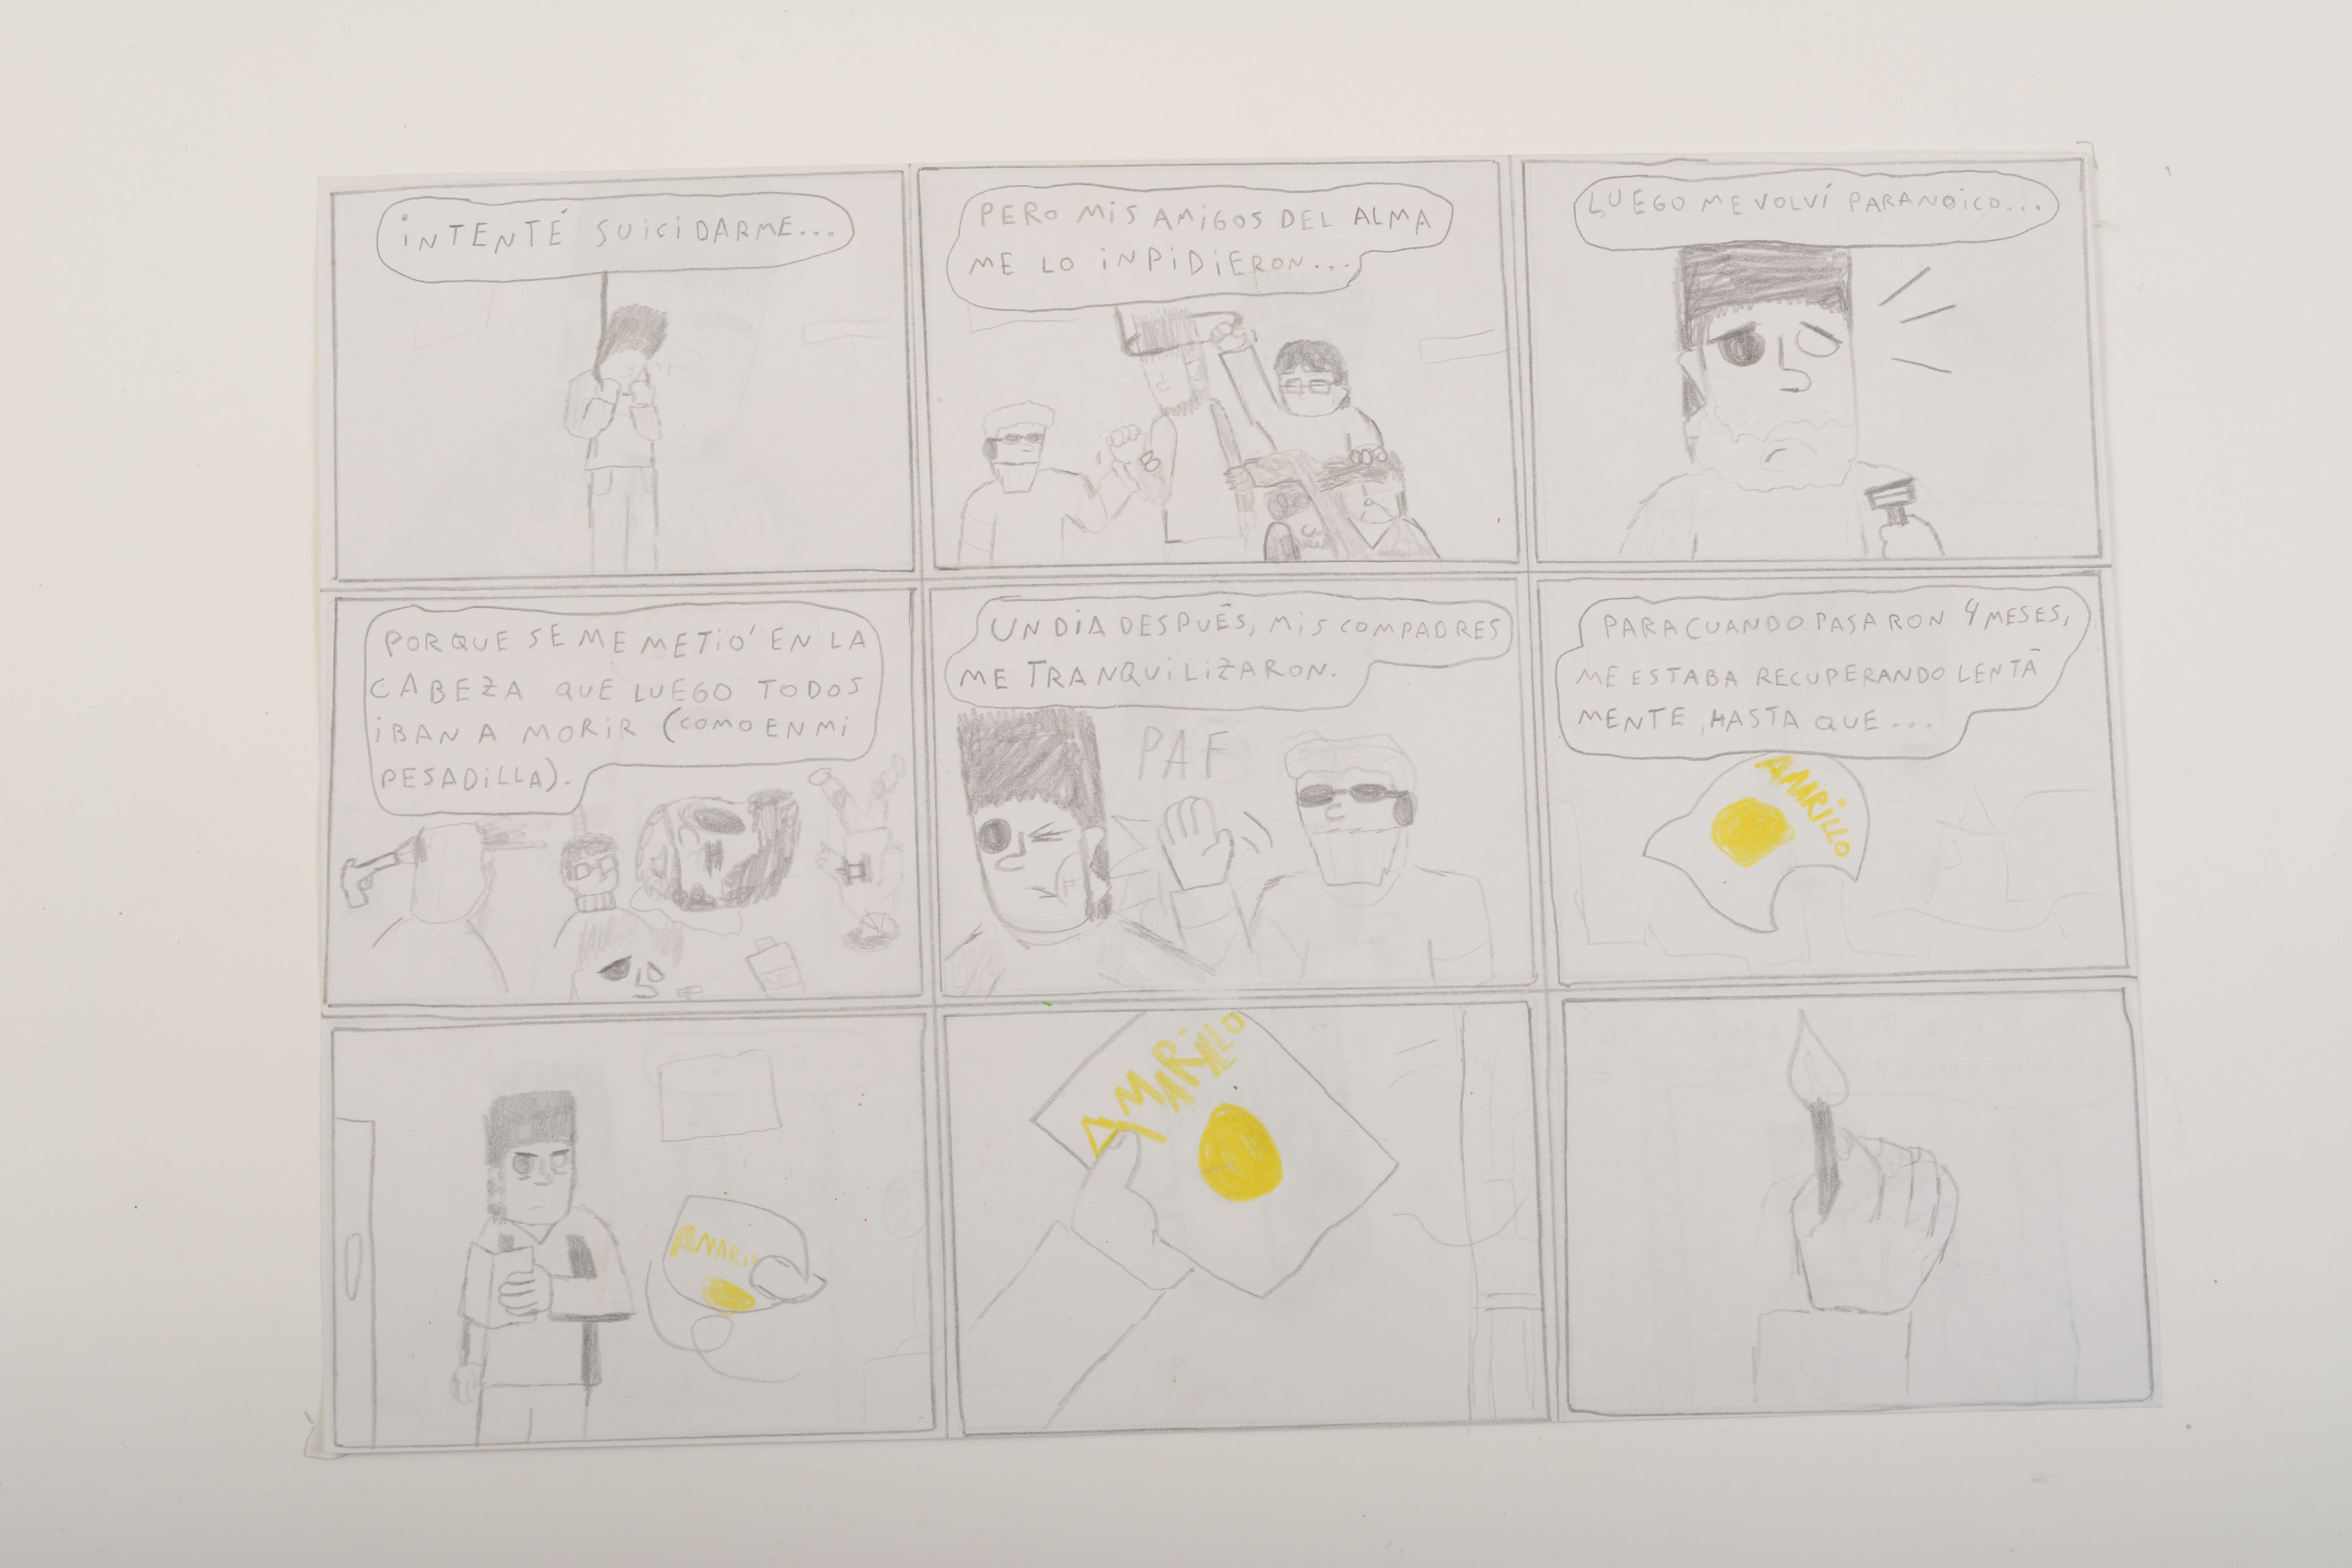 INTENTÉ SUICIDARME...
PERO MIS AMIGOS DEL ALMA
ME LO INPIDIERON...
LUEGO ME VOLVÍ PARANOICO...
B
PORQUE SE ME METIÓ EN LA
CABEZA QUE LUEGO TODOS
IBAN A MORIR (COMO EN MI
PESADILLA).
UN DÍA DESPUÉS, MIS COMPADRES
ME TRANQUILIZARON.
PAF
PARA CUANDO PASARON 4 MESES,
ME ESTABA RECUPERANDO LENTA
MENTE, HASTA QUE...
AMARILLO
AMARIL
AMARILLO